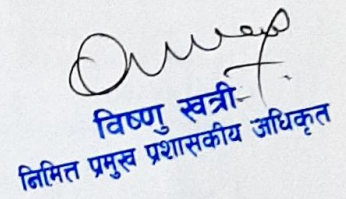 विष्णु खत्री
निमित्त प्रमुख प्रशासकीय अधिकृत